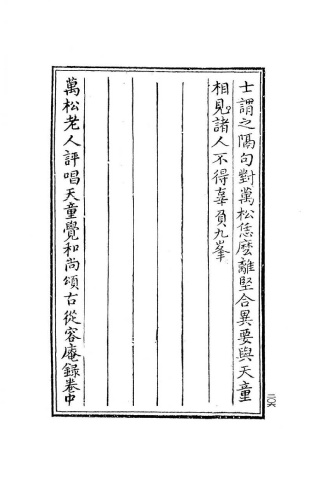 士謂之隔句對萬松恁麽離堅合異要與天童
相見諸人不得辜負九峯
萬松老人評唱天童覺和尚頌古從容庵錄卷中
二〇六